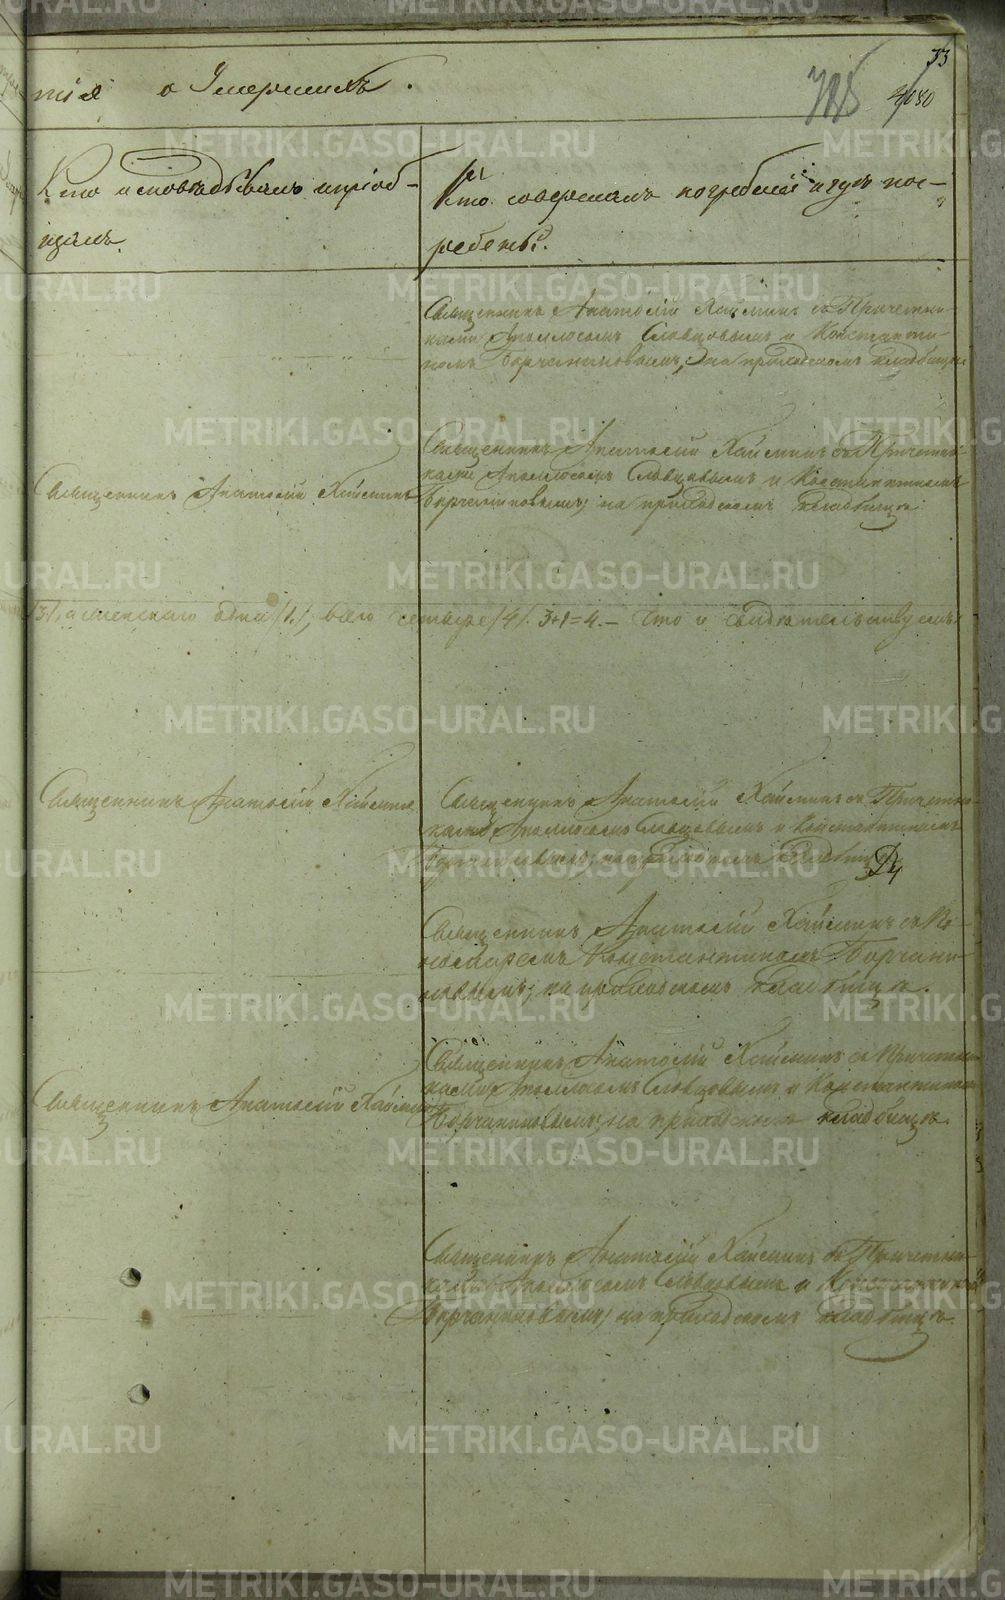 33
тія о Умершихъ.
4080
Кто исповѣдывалъ и пріоб-
щалъ.
Кто совершалъ погребеніе и гдѣ пог-
ребены.
Священникъ Анатолій Хайминъ съ Причетни-
ками Аполлосомъ Словцовымъ и Константи-
номъ Борчаниновымъ, на приходскомъ кладбищѣ
Священникъ Анатолій Хайминъ
Священникъ Анатолій Хайминъ съ Причетни-
ками Аполлосомъ Словцовымъ и Константиномъ
Борчаниновымъ, на приходскомъ кладбищѣ
/3/, а женскаго одна /1/, всего четыре /4/. 3+1=4.– Что и свидѣтельствуемъ:
Священникъ Анатолій Хайминъ
Священникъ Анатолій Хайминъ съ Причетни-
ками Аполлосомъ Словцовымъ и Константиномъ
Борчаниновымъ, на приходскомъ кладбищѣ
Священникъ Анатолій Хайминъ съ По-
номаремъ Константиномъ Борчани-
новымъ, на приходскомъ кладбищѣ.
Священникъ Анатолій Хайминъ
Священникъ Анатолій Хайминъ съ Причетни-
ками Аполлосомъ Словцовымъ и Константиномъ
Борчаниновымъ, на приходскомъ кладбищѣ.
Священникъ Анатолій Хайминъ съ Причетни-
ками Аполлосомъ Словцовымъ и Константиномъ
Борчаниновымъ, на приходскомъ кладбищѣ.
METRIKI.GASO-URAL.RU